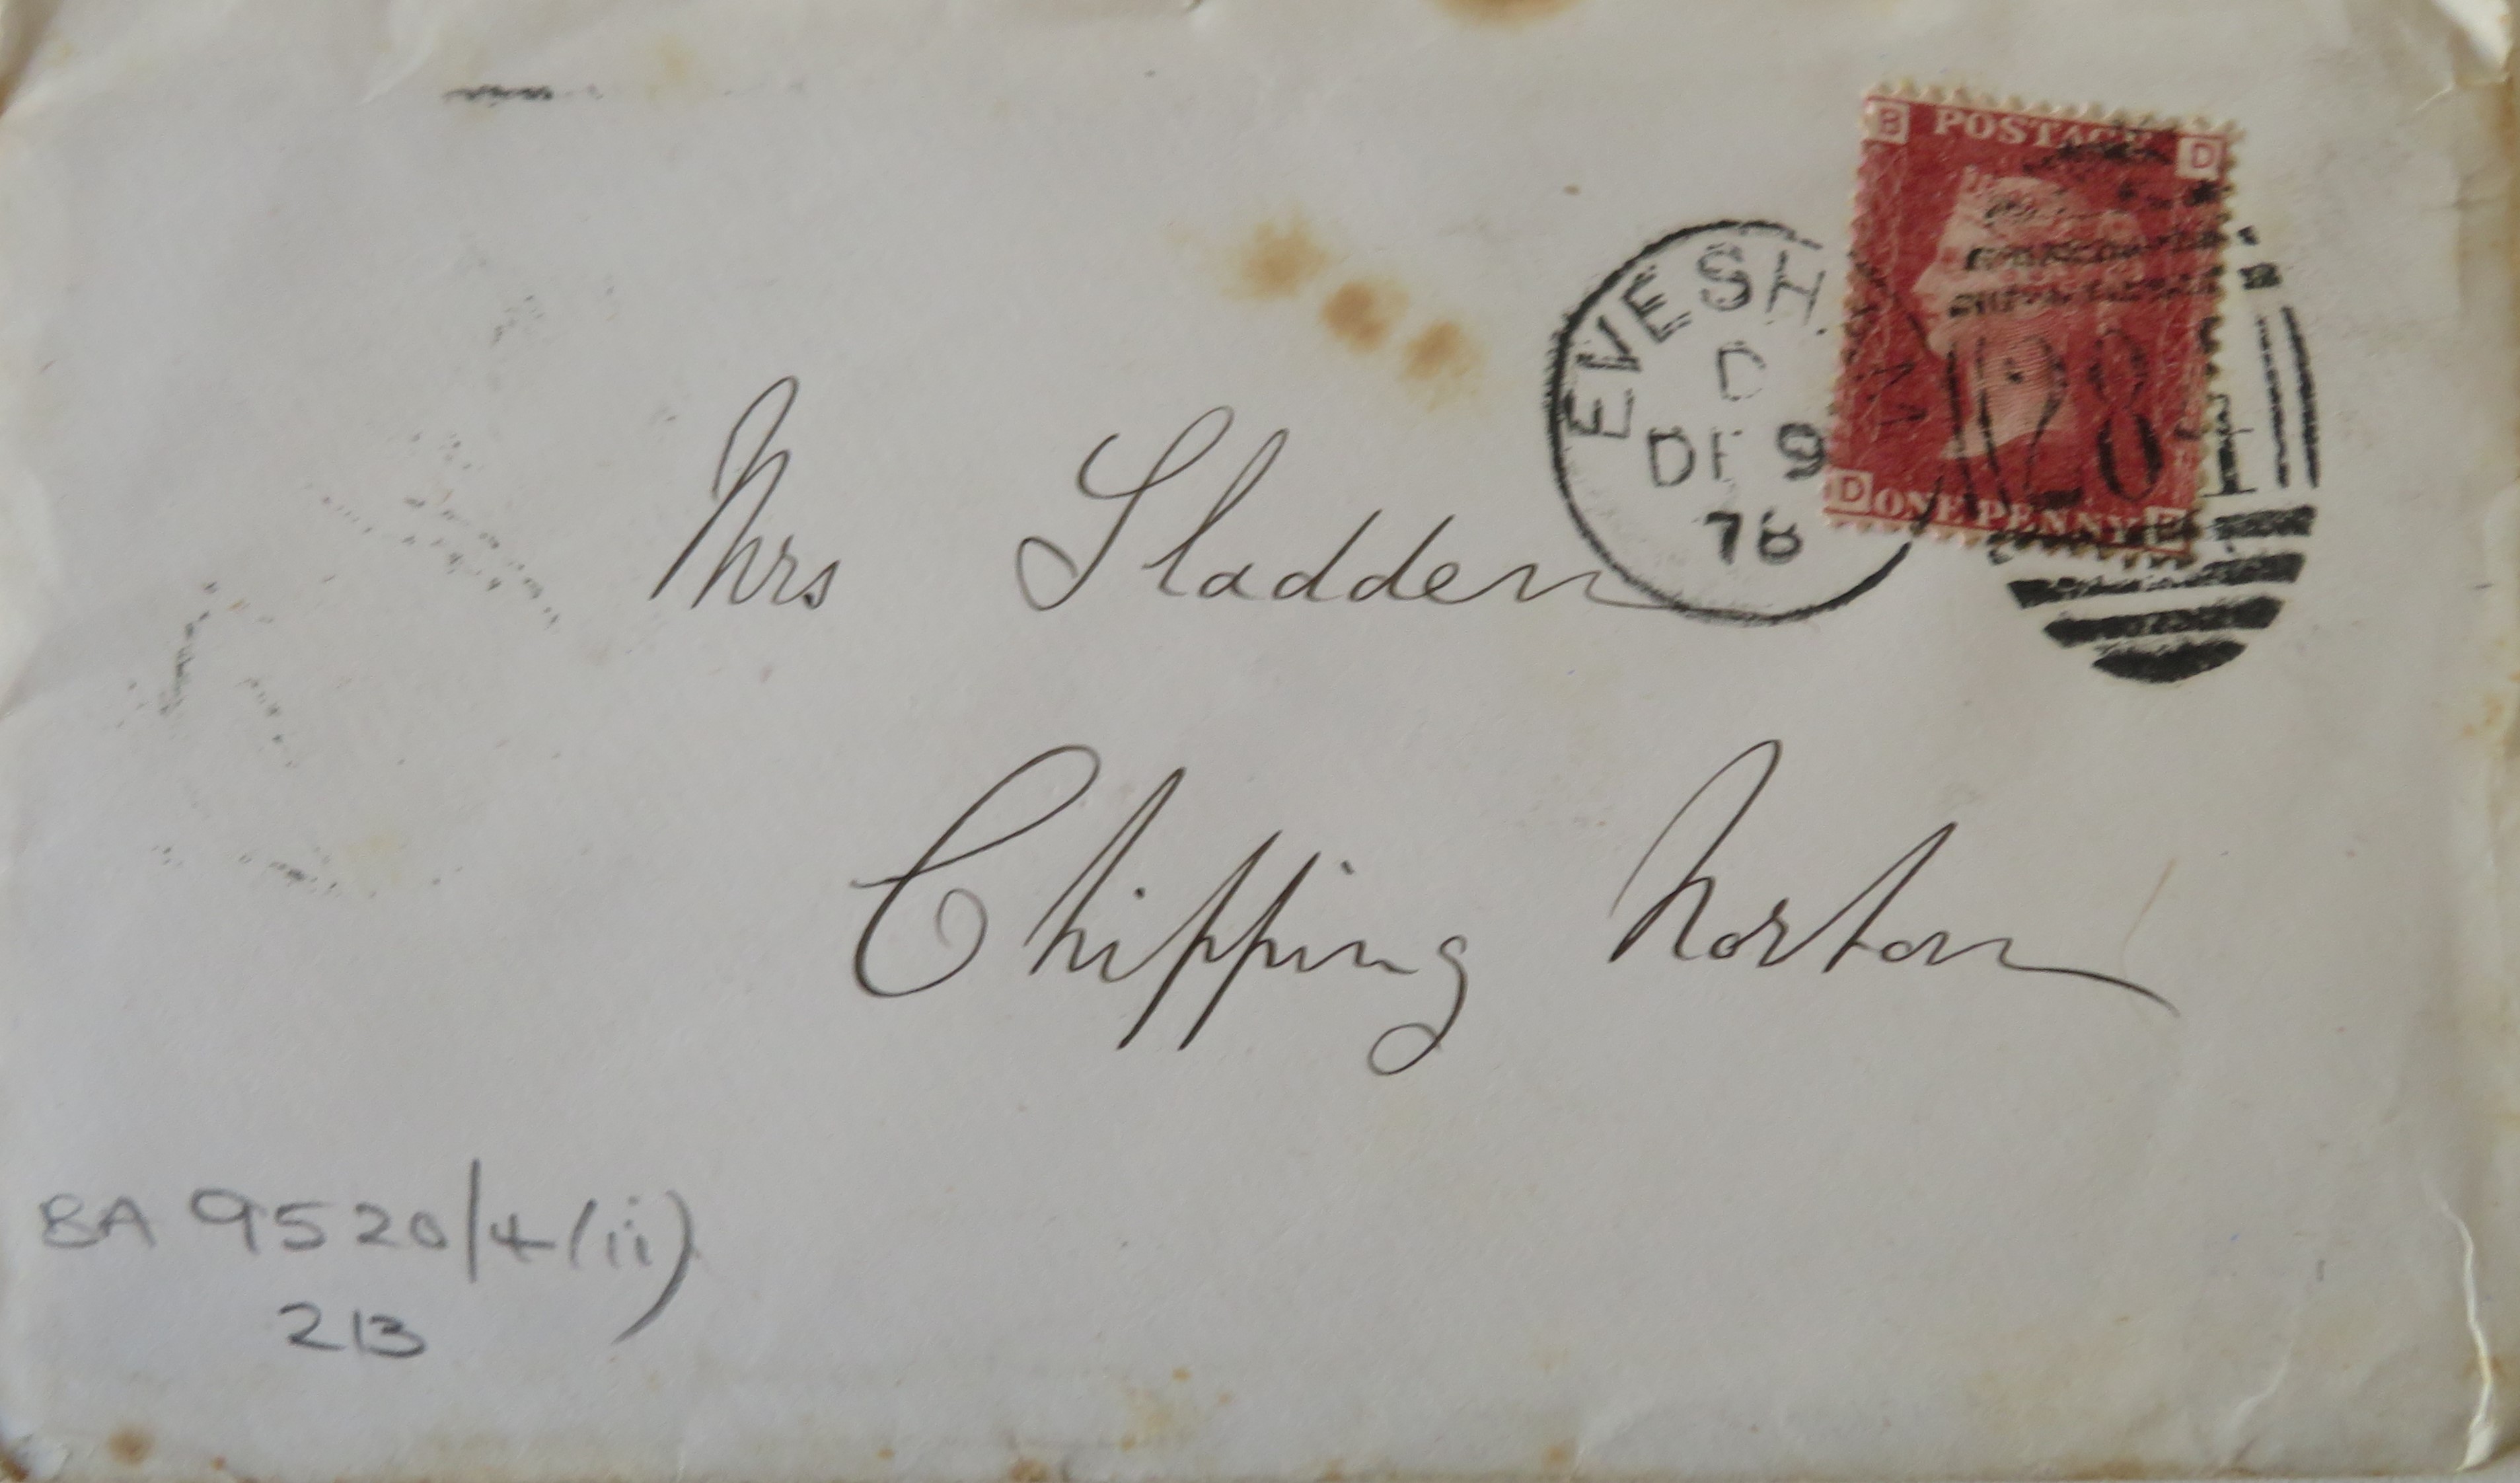 B POSTAGE D
EVESH
D
DE 9
78
D ONE PENNY B
Mrs Sladden
Chipping Norton
BA 9520/4/(ii)
213